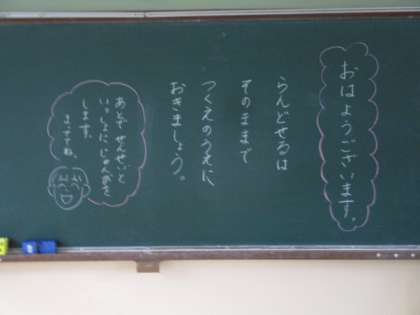 おはようございます。
らんどせるは
そのままで
つくえのうえに
おきましょう。
あとで せんせいと
いっしょにじゅんびを
します。
まっててね。